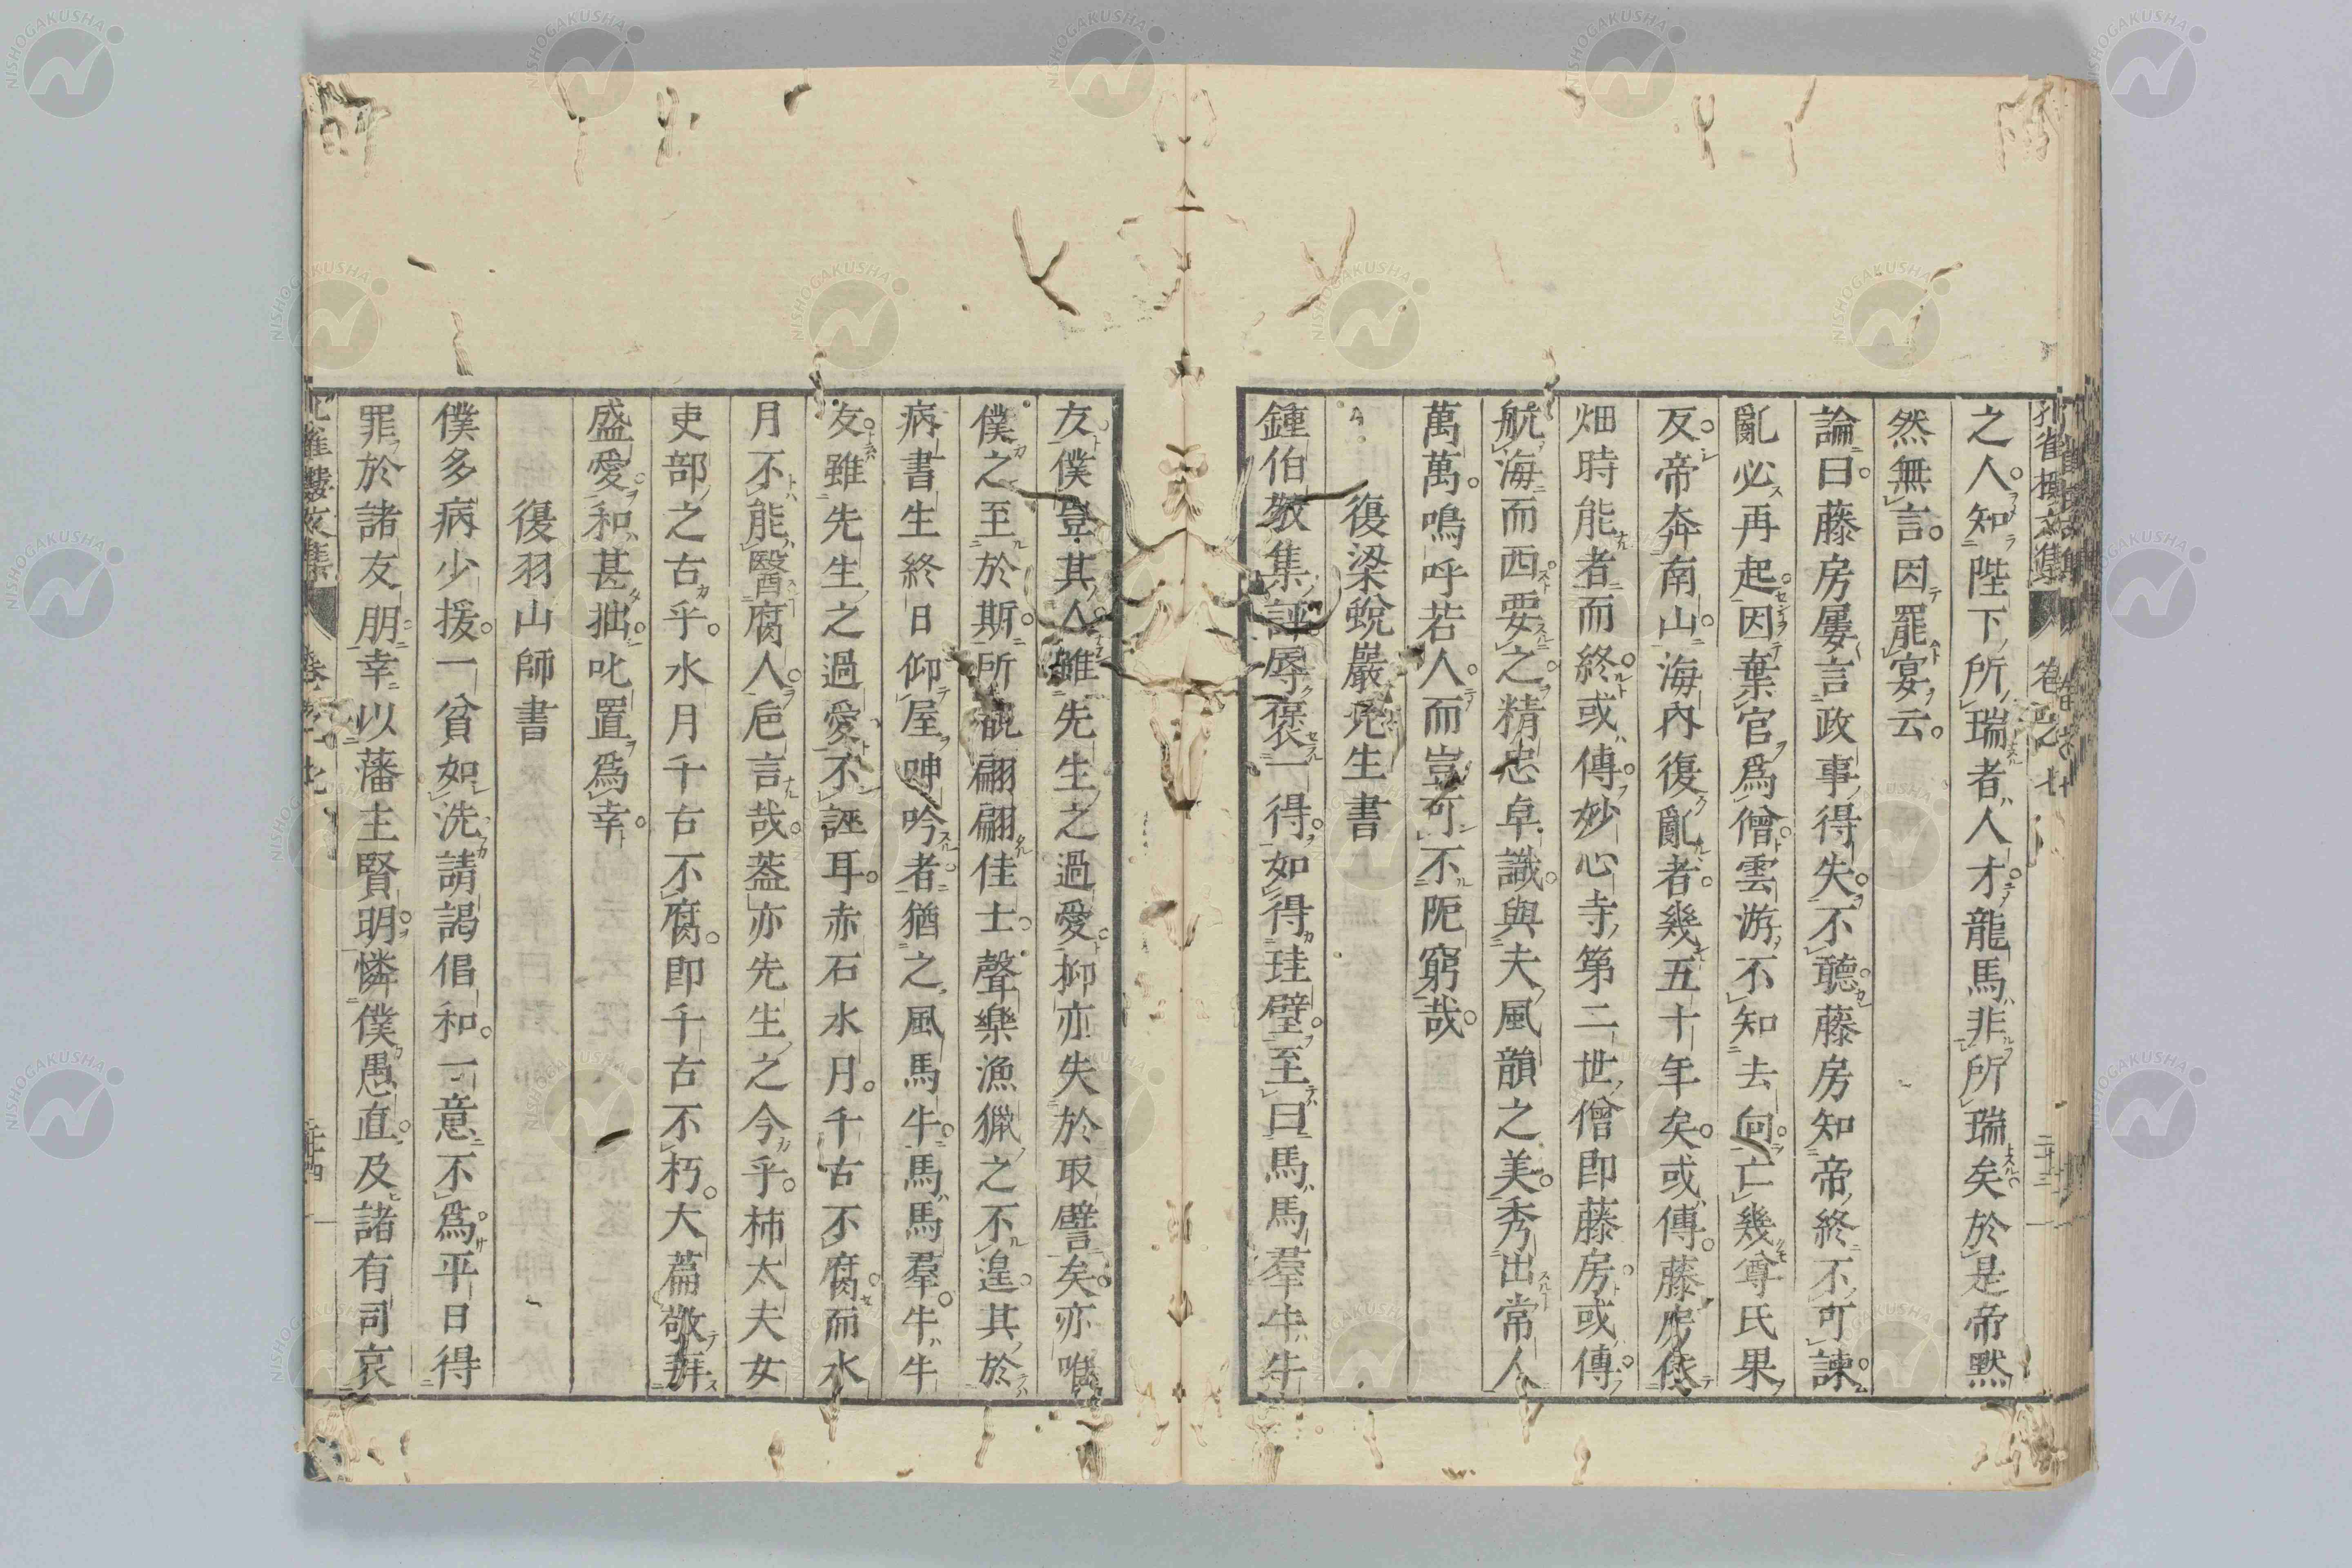 之人。知陛下所瑞者人才。龍馬非所瑞矣。於是帝默
然無言。因罷宴云。
論曰。藤房屢言政事得失。不聽。藤房知帝終不可諫。
亂必再起。因棄官爲僧。雲游不知去向。亡幾尊氏果
反。帝奔南山。海內復亂者。幾五十年矣。或傳。藤房依
畑時能者而終。或傳。妙心寺第二世僧卽藤房。或傳。
航海而西。要之。精忠卓識。與夫風韻之美。秀出常人
萬萬。嗚呼若人。而豈可不阨窮哉。
復梁蛻巖先生書
鍾伯敬集。謬辱褒一得。如得珪璧。至曰馬馬羣牛牛
友。僕豈其人。雖先生之過愛。抑亦失於取譬矣。亦唯
僕之至於斯。所觀翩翩佳士。聲樂漁獵之不遑。其於
病書生終日仰屋呻吟者。猶之風馬牛。馬馬羣。牛牛
友。雖先生之過愛。不誣耳。赤石水月。千古不腐。而水
月不能醫腐人。巵言哉。蓋亦先生之今乎。柿太夫女
吏部之古乎。水月千古不腐。卽千古不朽。大篇敬拜
盛愛。和甚拙。叱置爲幸。
復羽山師書
僕多病少援。一貧如洗。請謁倡和。一意不爲。平日得
罪於諸友朋。幸以藩主賢明。憐僕愚直。及諸有司哀
孔雀樓文集 卷之七 二十三
孔雀樓文集 卷之七